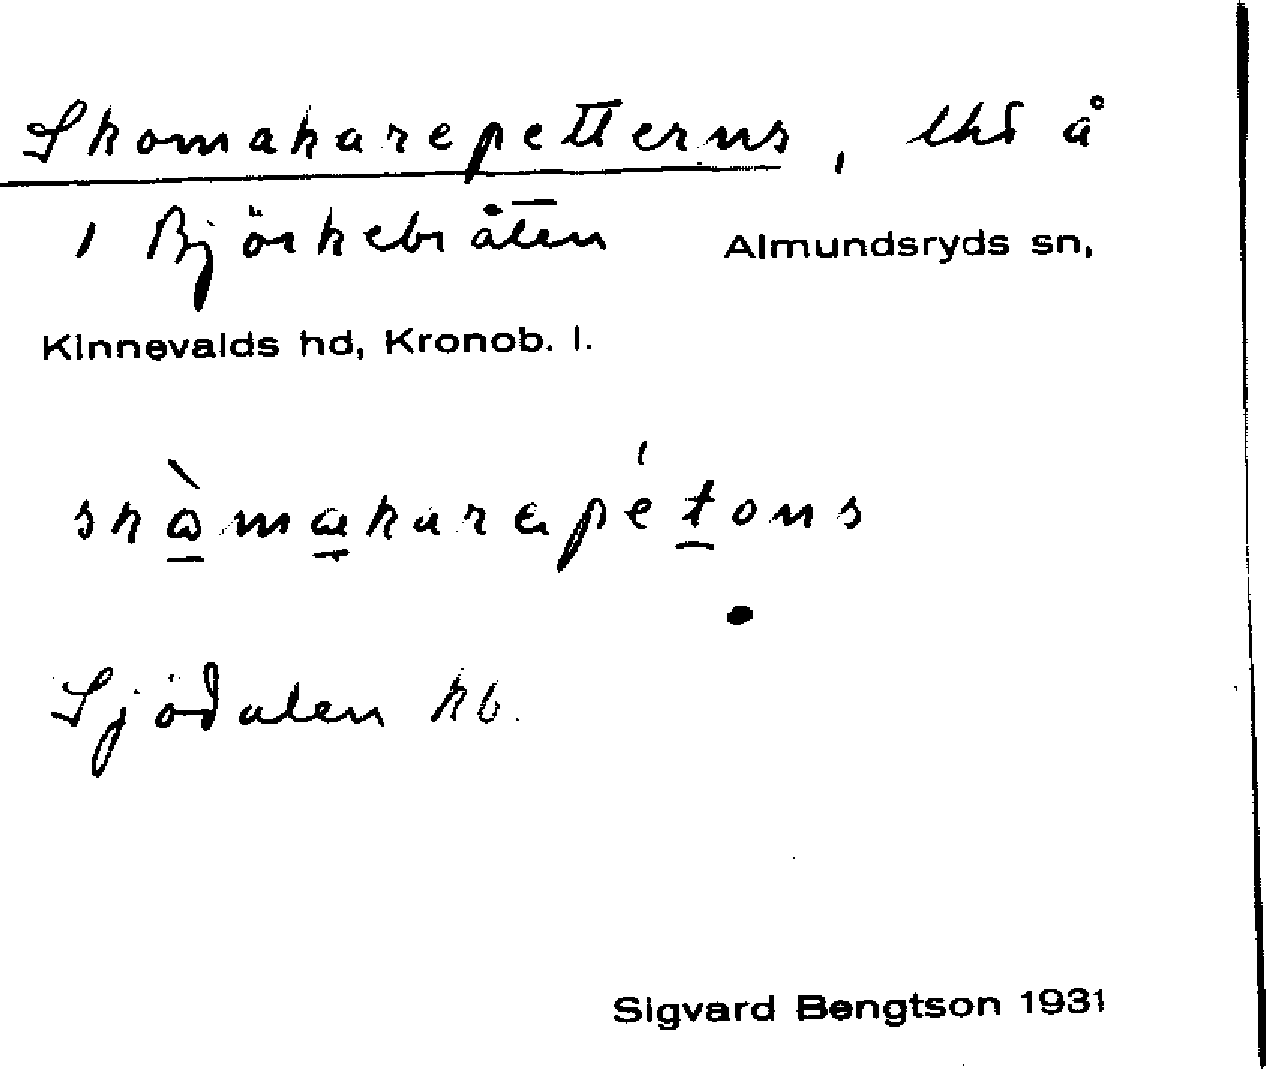 Skomakarepetterns, lhs å
1 Björkebråten Almundsryds sn,
Kinnevalds hd, Kronob. l.
skòmakarapétons
Sjödalen kb.
Sigvard Bengtson 1931